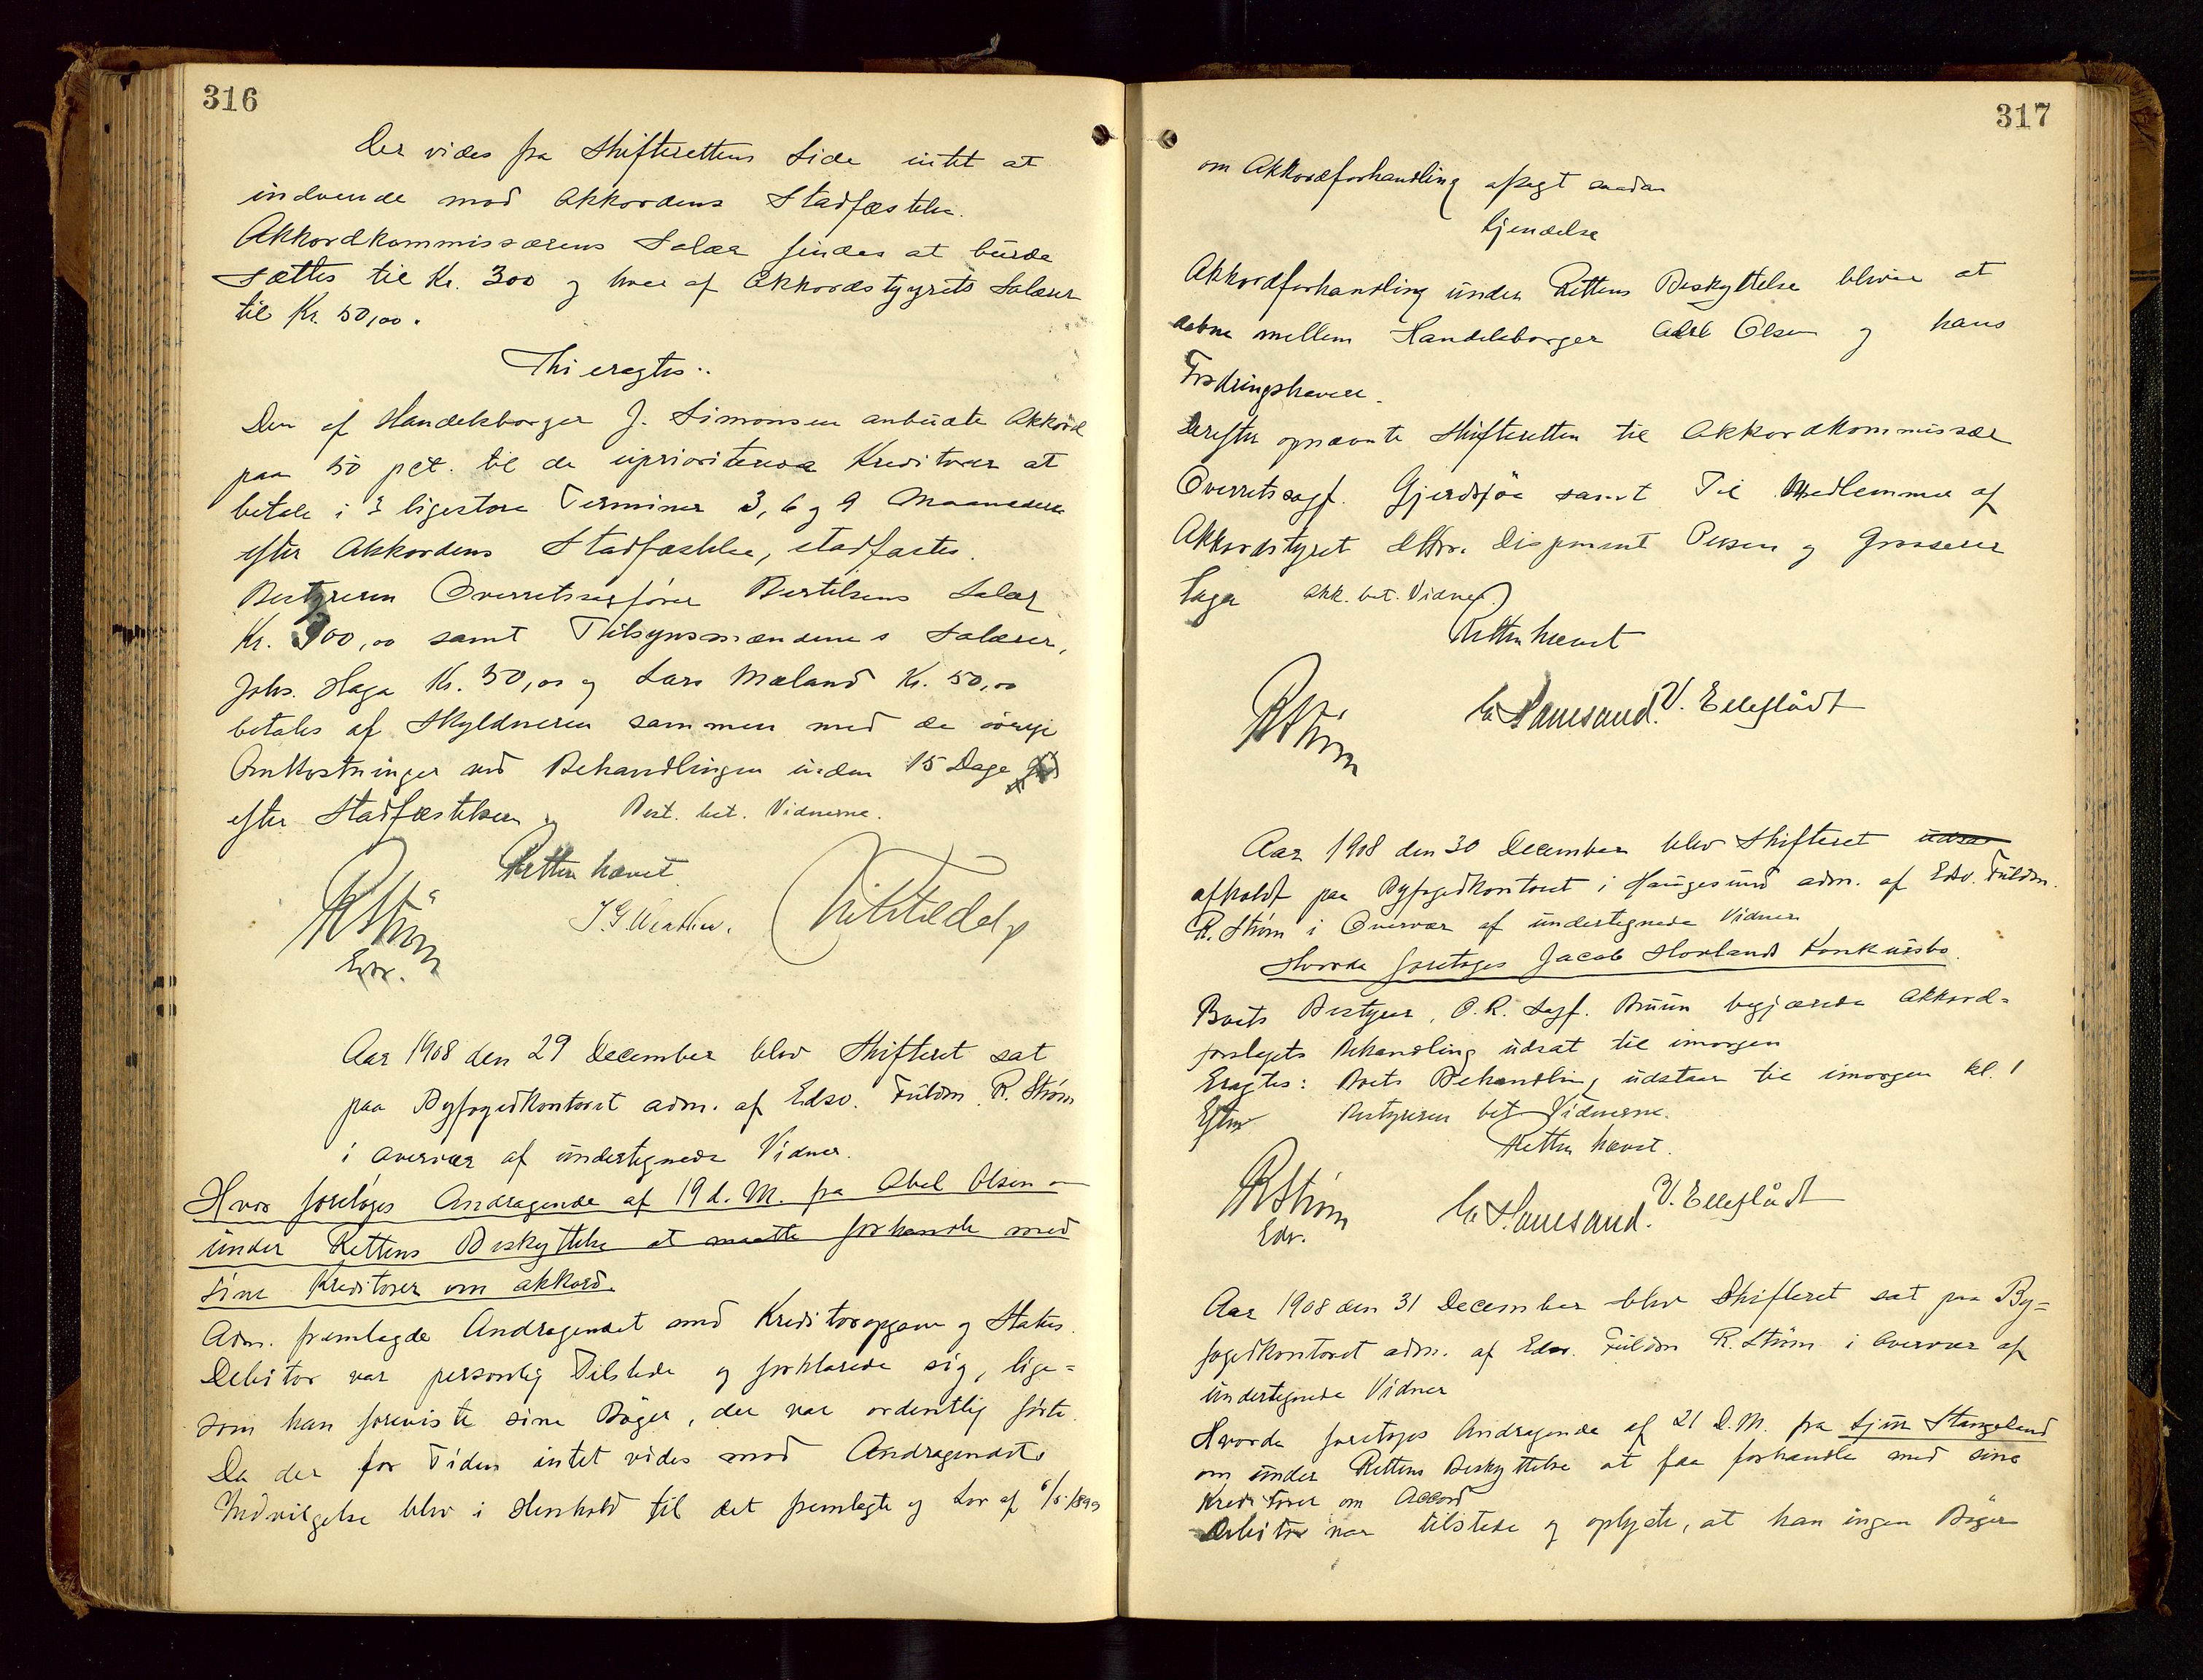 316
Der vides fra Skifterettens Side intet at
indvende mod Akkordens Stadfæstelse.
Akkordkommissærens Salær findes at burde
sættes til Kr. 300 og hver af Akkordstyrets Salærer
til Kr. 50,00.
Thi eragtes:
Den af Handelsborger J. Simonsen anbudte Akkord
paa 50 pct. til de uprioriterede Kreditorer at
betale i 3 ligestore Terminer 3, 6 og 9 Maaneder
efter Akkordens Stadfæstelse, stadfæstes.
Bestyreren Overretssagfører Bertelsens Salær
Kr. 300,00 samt Tilsynsmændenes Salærer,
Johs. Haga Kr. 50,00 og Lars Mæland Kr. 50,00
betales af Skyldneren sammen med de øvrige
Omkostninger ved Behandlingen inden 15 Dage
efter Stadfæstelsen. Best. bet. Vidnerne.
Retten hævet
RStrøm
Edsv.
Aar 1908 den 29 December blev Skifteret sat
paa Byfogedkontoret adm. af Edsv. Fuldm. R. Strøm
i Overvær af undertegnede Vidner.
Hvor foretoges Andragende af 19 d. M. fra Abel Olsen om
under Rettens Beskyttelse at maatte forhandle med
sine Kreditorer om akkord.
Adm. fremlagde Andragendet med Kreditoropgave og Status.
Debitor var personlig Tilstede og forklarede sig, lige=
som han foreviste sine Bøger, der var ordentlig ført.
Da der for Tiden intet vides mod Andragendets
Indvilgelse blev i Henhold til det fremlagte og Lov af 6/5 1899
317
om Akkordforhandling afsagt saadan
Kjendelse
Akkordforhandling under Rettens Beskyttelse bliver at
aabne mellem Handelsborger Abel Olsen og hans
Fordringshavere.
Derefter opnævnte Skifteretten til Akkordkommissær
Overretssagf. Gjerdsjøe samt Til Medlemmer af
Akkordstyret Disponent Persen og Grosserer
Haga Akk. bet. Vidner.
Retten hævet
RStrøm V. Elleflådt
Aar 1908 den 30 December blev Skifteret udsa
afholdt paa Byfogedkontoret i Haugesund adm. af Edsv. Fuldm.
R. Strøm i Overvær af undertegnede Vidner
Hvorda foretoges Jacob Hovlands Konkursbo.
Boets Bestyrer, O.R. Sagf. Bruun begjærede Akkord=
forslagets Behandling udsat til imorgen
Eragtes: Boets Behandling udstaar til imorgen kl. 1
Eftm Bestyreren bet Vidnerne.
Retten hævet.
RStrøm V. Elleflådt
Edsv.
Aar 1908 den 31 December blev Skifteret sat paa By=
fogedkontoret adm. af Edsv. Fuldm R. Strøm i Overvær af
undertegnede Vidner
Hvorda foretoges Andragende af 21 d.M. fra Stangeland
om under Rettens Beskyttelse at faa forhandle med sine
Kreditorer om Accord
Debitor var tilstede og oplyste, at han ingen Bøger